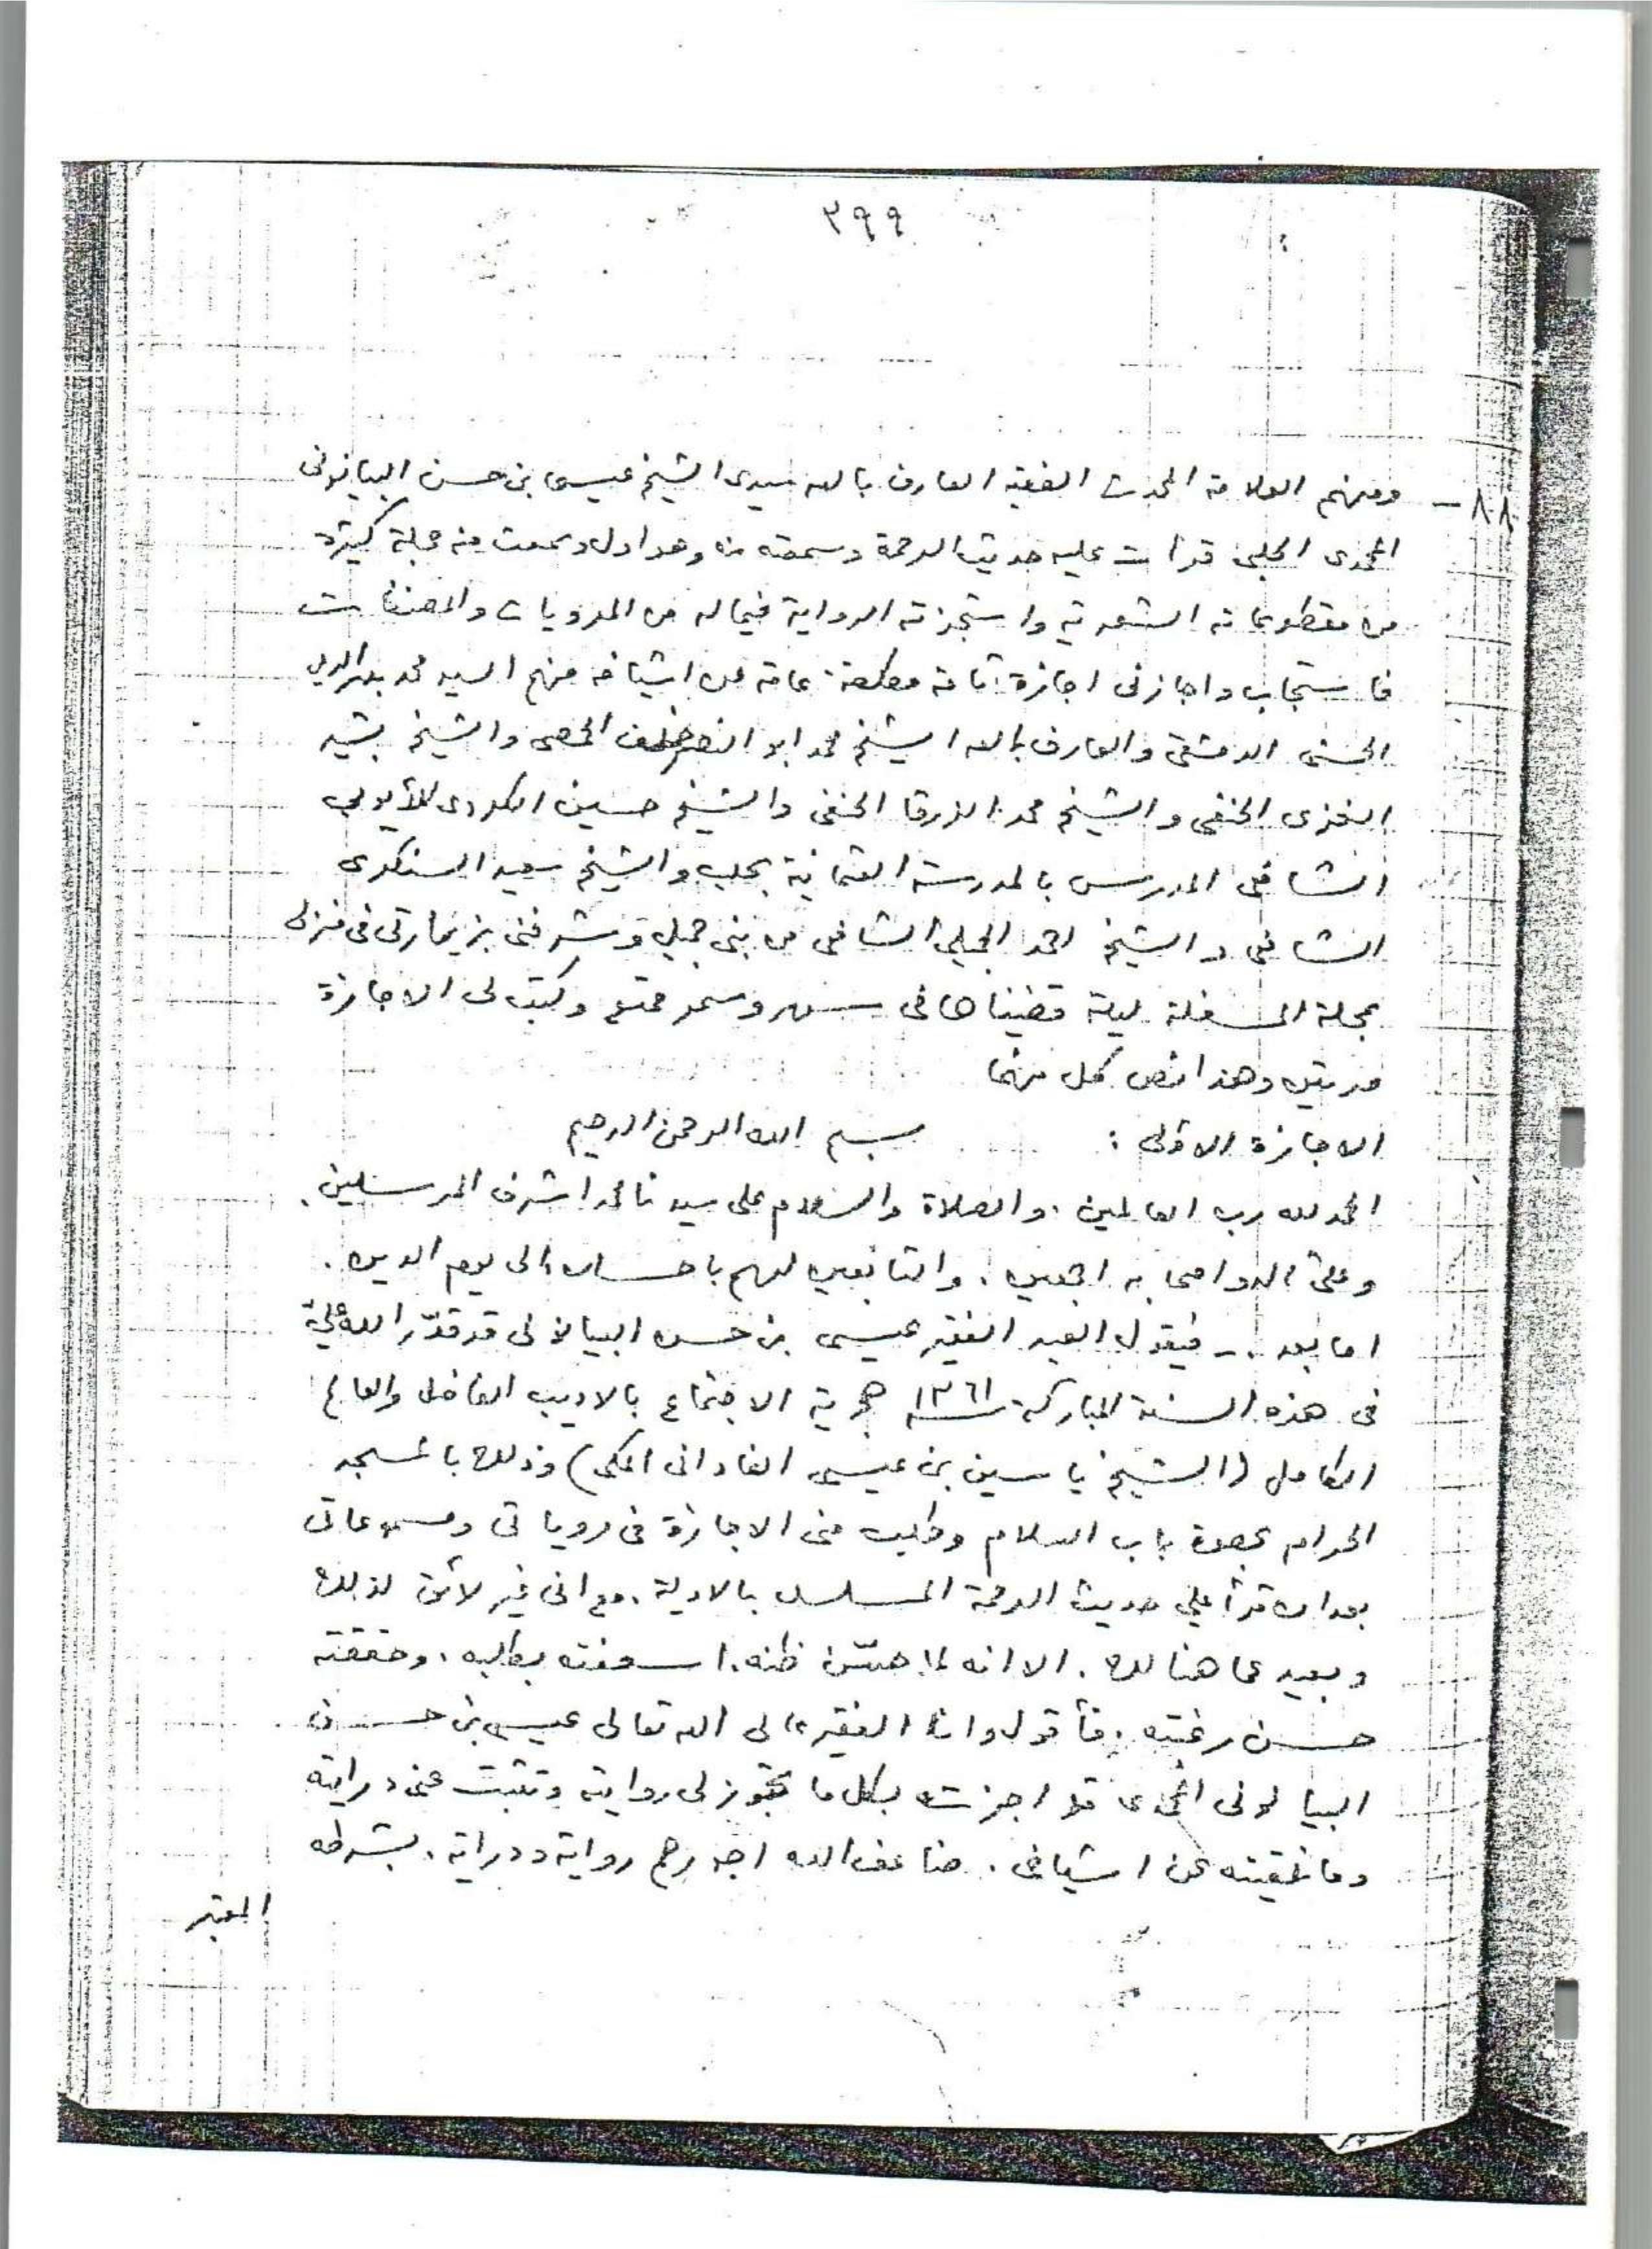 ٣٩٩
٨٨ - ومنهم العلامة المحدث الفقيه العارف بالله سيدى الشيخ عيسى بن حسن البيانونى
المحمدى الحلبى قرأت عليه حديث الرحمة وسمعته منه وهو اول وسمعت منه جملة كبيرة
من مقطوعاته الشعرية واستجزته الرواية فيما له من المرويات والمصنفات
فاستجاب واجازنى اجازة تامة مطلقة عامة عن اشياخه منهم السيد محمد بدر الدين
الحسنى الدمشقى والعارف بالله الشيخ محمد ابو النصر خلف الحمصى والشيخ بشير
الغزى الحنفى والشيخ محمد الزرقا الحنفى والشيخ حسين الكردى الأيوبى
الشافعى المدرس بالمدرسة العثمانية بحلب والشيخ سعيد السنكرى
الشافعى والشيخ احمد الجميلى الشافعى من بنى جميل وشرفنى بزيارتى فى منزلى
بمحلة المسفلة ليلة قضيناها فى سهر وسمر ممتع وكتب لى الاجازة
مرتين وهذا نص كل منهما
الاجازة الاولى : بسم الله الرحمن الرحيم
الحمد لله رب العالمين . والصلاة والسلام على سيدنا محمد اشرف المرسلين .
وعلى آله واصحابه اجمعين . والتابعين لهم باحسان الى يوم الدين .
اما بعد . - فيقول العبد الفقير عيسى بن حسن البيانونى قد قدّر الله علىّ
فى هذه السنة المباركة سنة ١٣٦١ هجرية الاجتماع بالاديب الفاضل والعالم
الكامل (الشيخ ياسين بن عيسى الفادانى المكى) وذلك بالمسجد
الحرام بحصوة باب السلام وطلب منى الاجازة فى مروياتى ومسموعاتى
بعد ان قرأ علي حديث الرحمة المسلسل بالاولية . مع انى غير لائق لذلك
وبعيد عما هنالك . الا انه لما حسّن ظنه . اسعفته بطلبه . وحققت
حسن رغبته . فأقول وانا الفقير الى الله تعالى عيسى بن حسن
البيانونى المحمدى قد اجزته بكل ما تجوز لى روايته وتثبت عنى درايته
وما تلقيته عن اشياخى . ضاعف الله اجورهم رواية ودراية . بشرطه
المعتبر